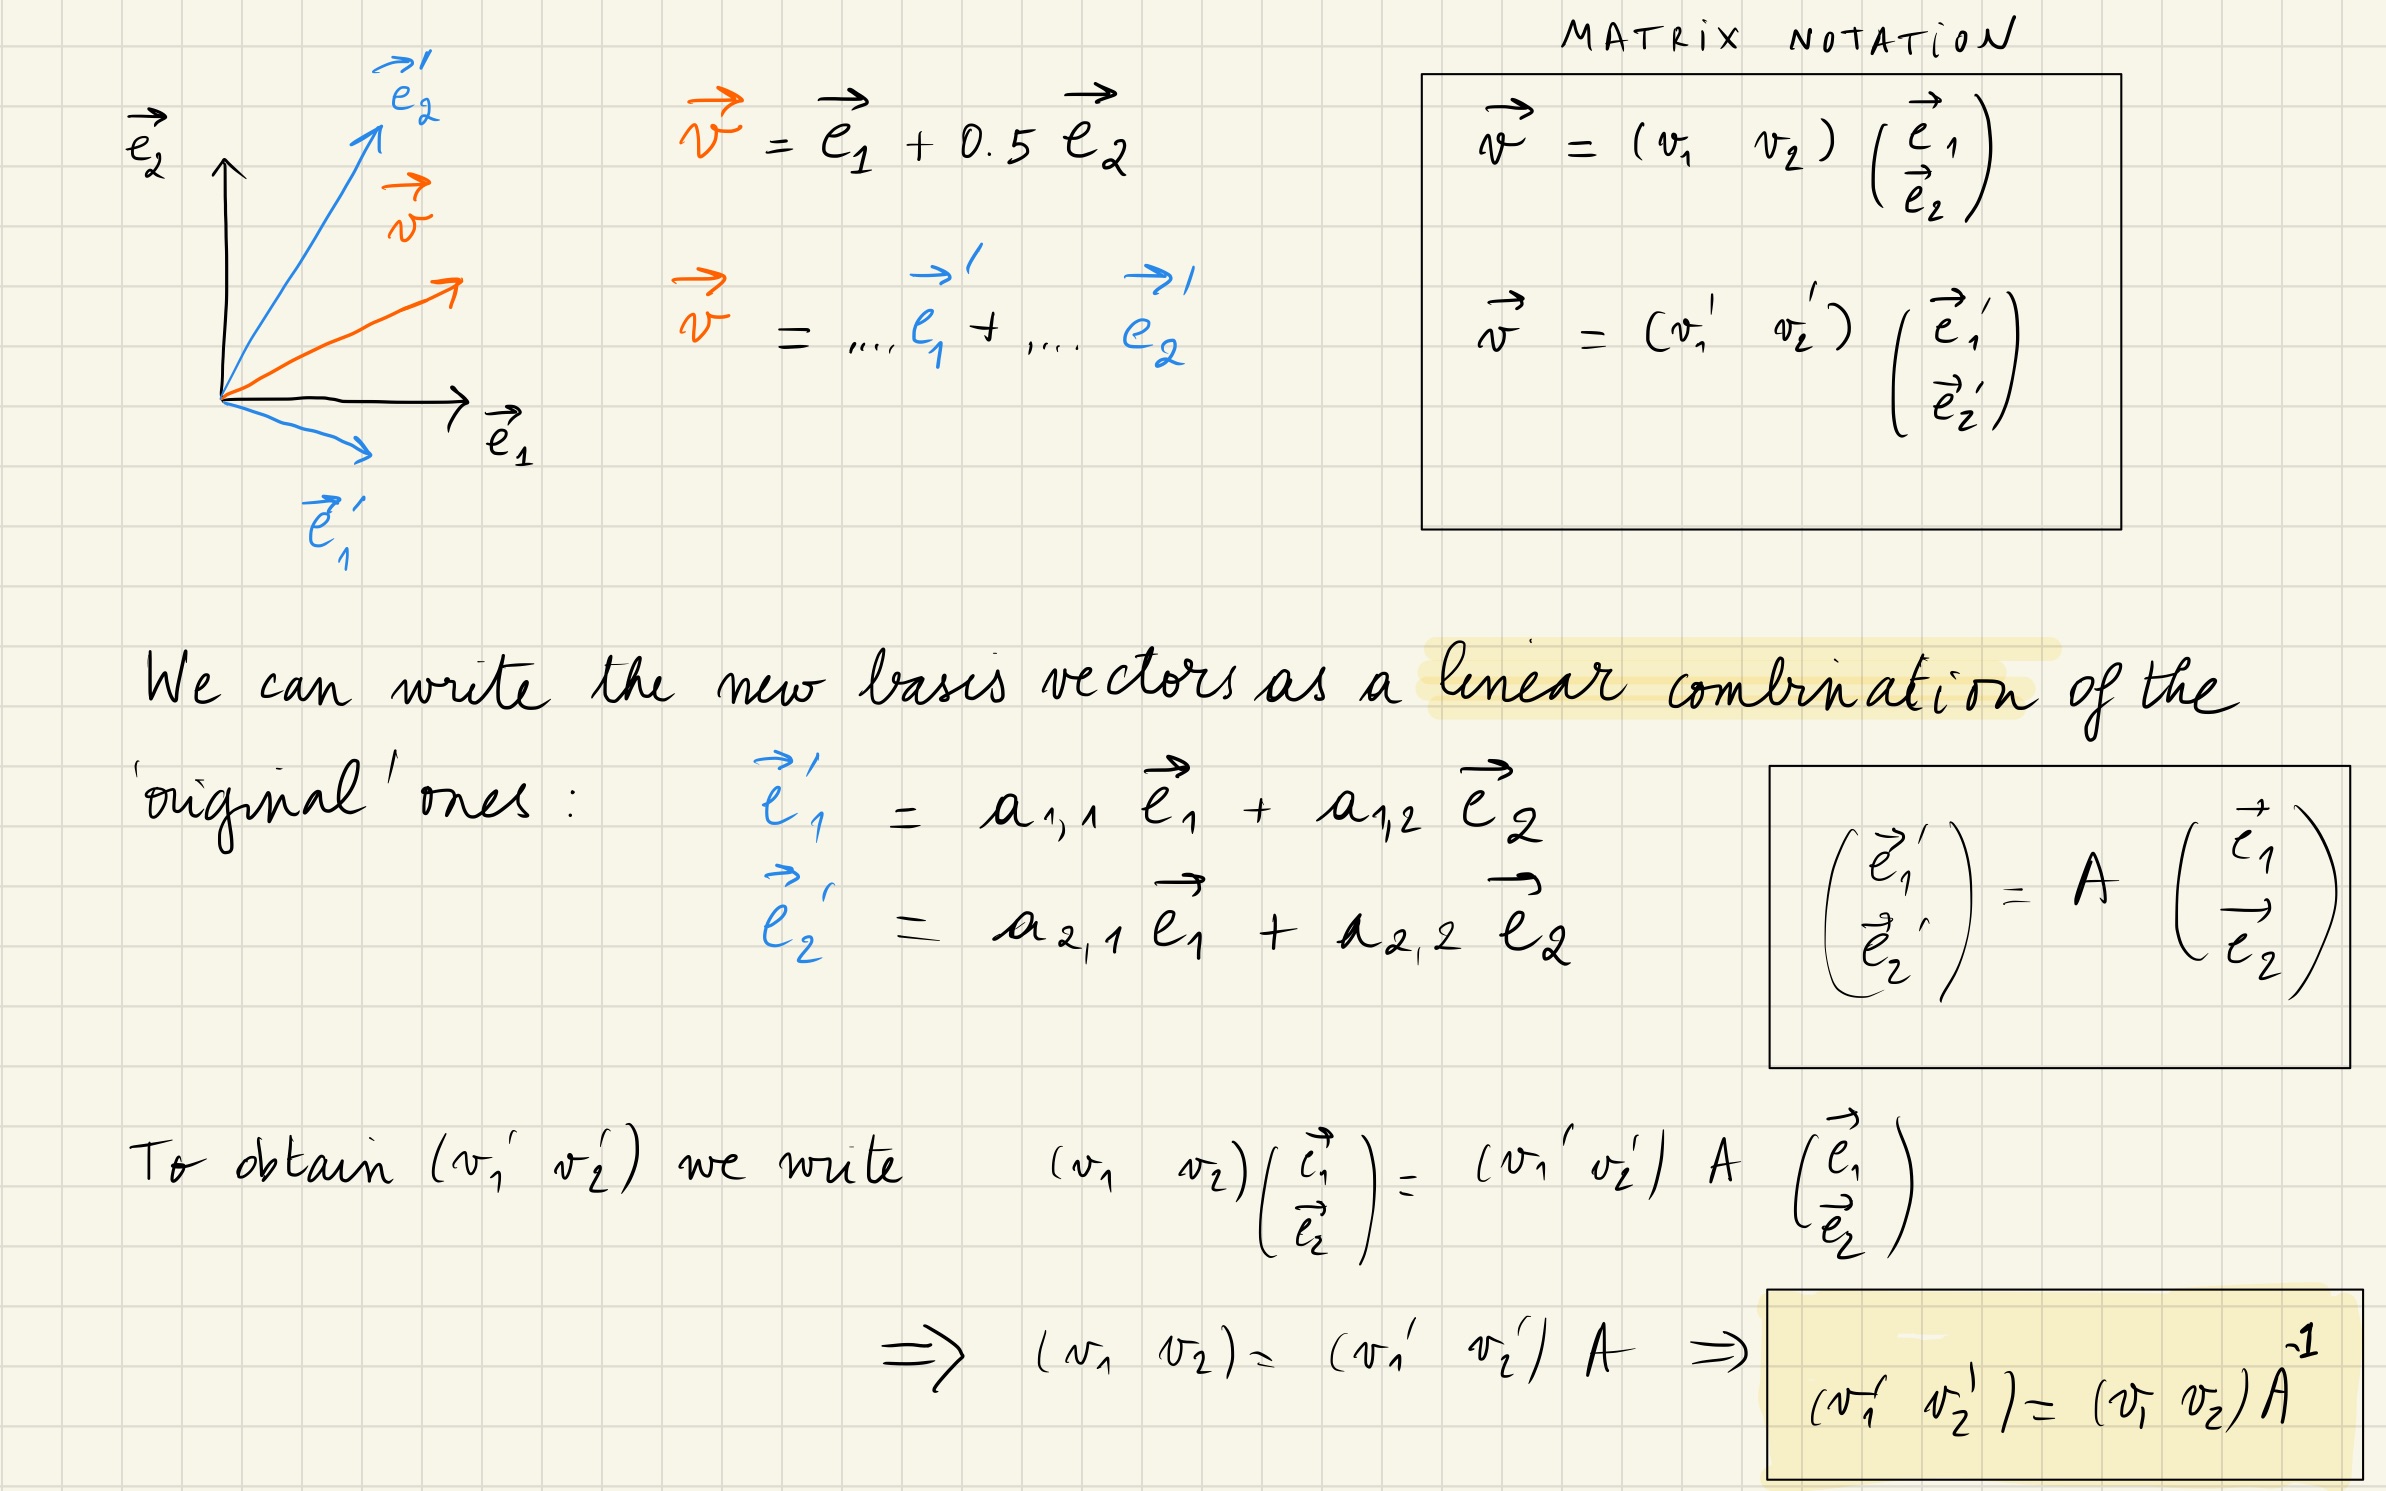 MATRIX NOTATION
e⃗₂
e⃗₂'
v⃗
e⃗₁
e⃗₁'
v⃗ = e⃗₁ + 0.5 e⃗₂
v⃗ = .... e⃗₁' + .... e⃗₂'
v⃗ = (v₁ v₂) (e⃗₁
e⃗₂)
v⃗ = (v₁' v₂') (e⃗₁'
e⃗₂')
We can write the new basis vectors as a linear combination of the
'original' ones : e⃗₁' = a₁,₁ e⃗₁ + a₁,₂ e⃗₂
e⃗₂' = a₂,₁ e⃗₁ + a₂,₂ e⃗₂
(e⃗₁'
e⃗₂') = A (e⃗₁
e⃗₂)
To obtain (v₁' v₂') we write (v₁ v₂)(e⃗₁
e⃗₂) = (v₁' v₂') A (e⃗₁
e⃗₂)
⇒ (v₁ v₂) = (v₁' v₂') A ⇒ (v₁' v₂') = (v₁ v₂) A⁻¹